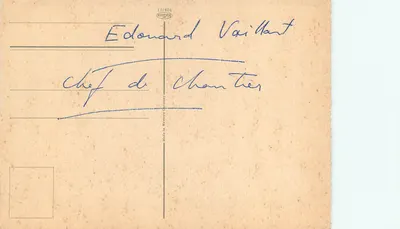 Edouard Vaillant
Chef de Chantier